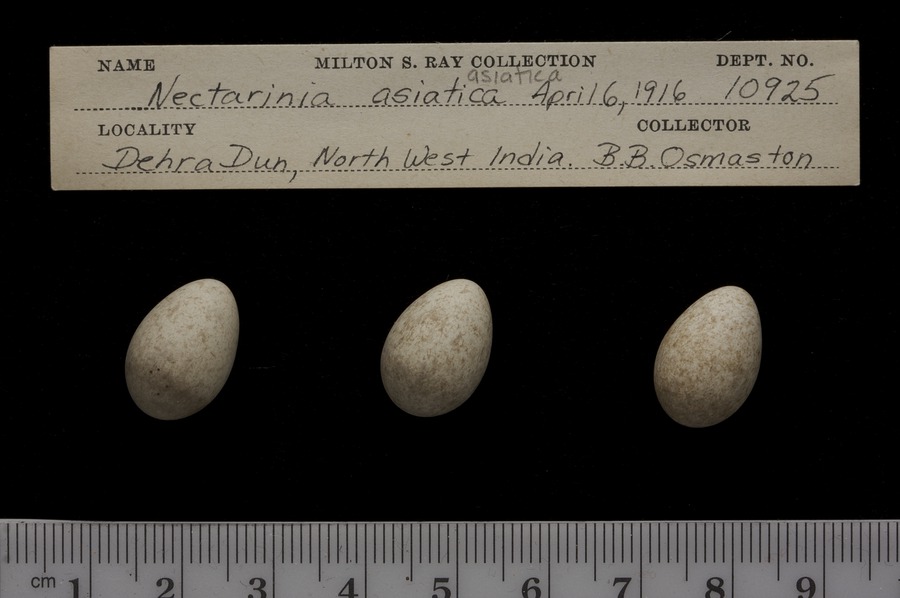 NAME MILTON S. RAY COLLECTION DEPT. NO.
asiatica
Nectarinia asiatica April 6, 1916 10925
LOCALITY COLLECTOR
Dehra Dun, North West India. B.B. Osmaston
cm 1 2 3 4 5 6 7 8 9